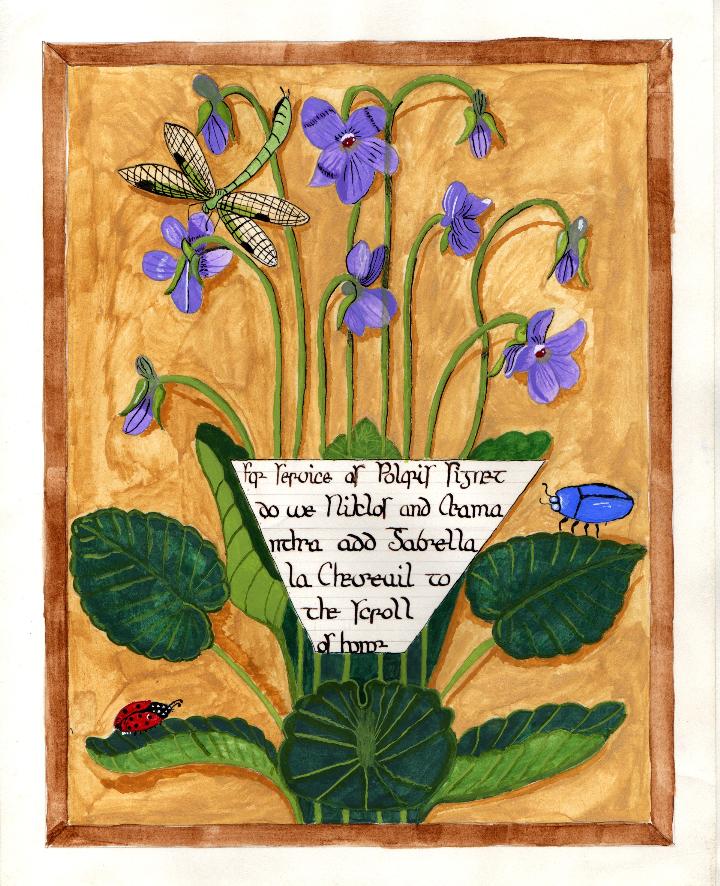 for service as Polaris Signet
do we Niklos and Ceama
ntha add Sabrella
la Chevreuil to
the scroll
of honor